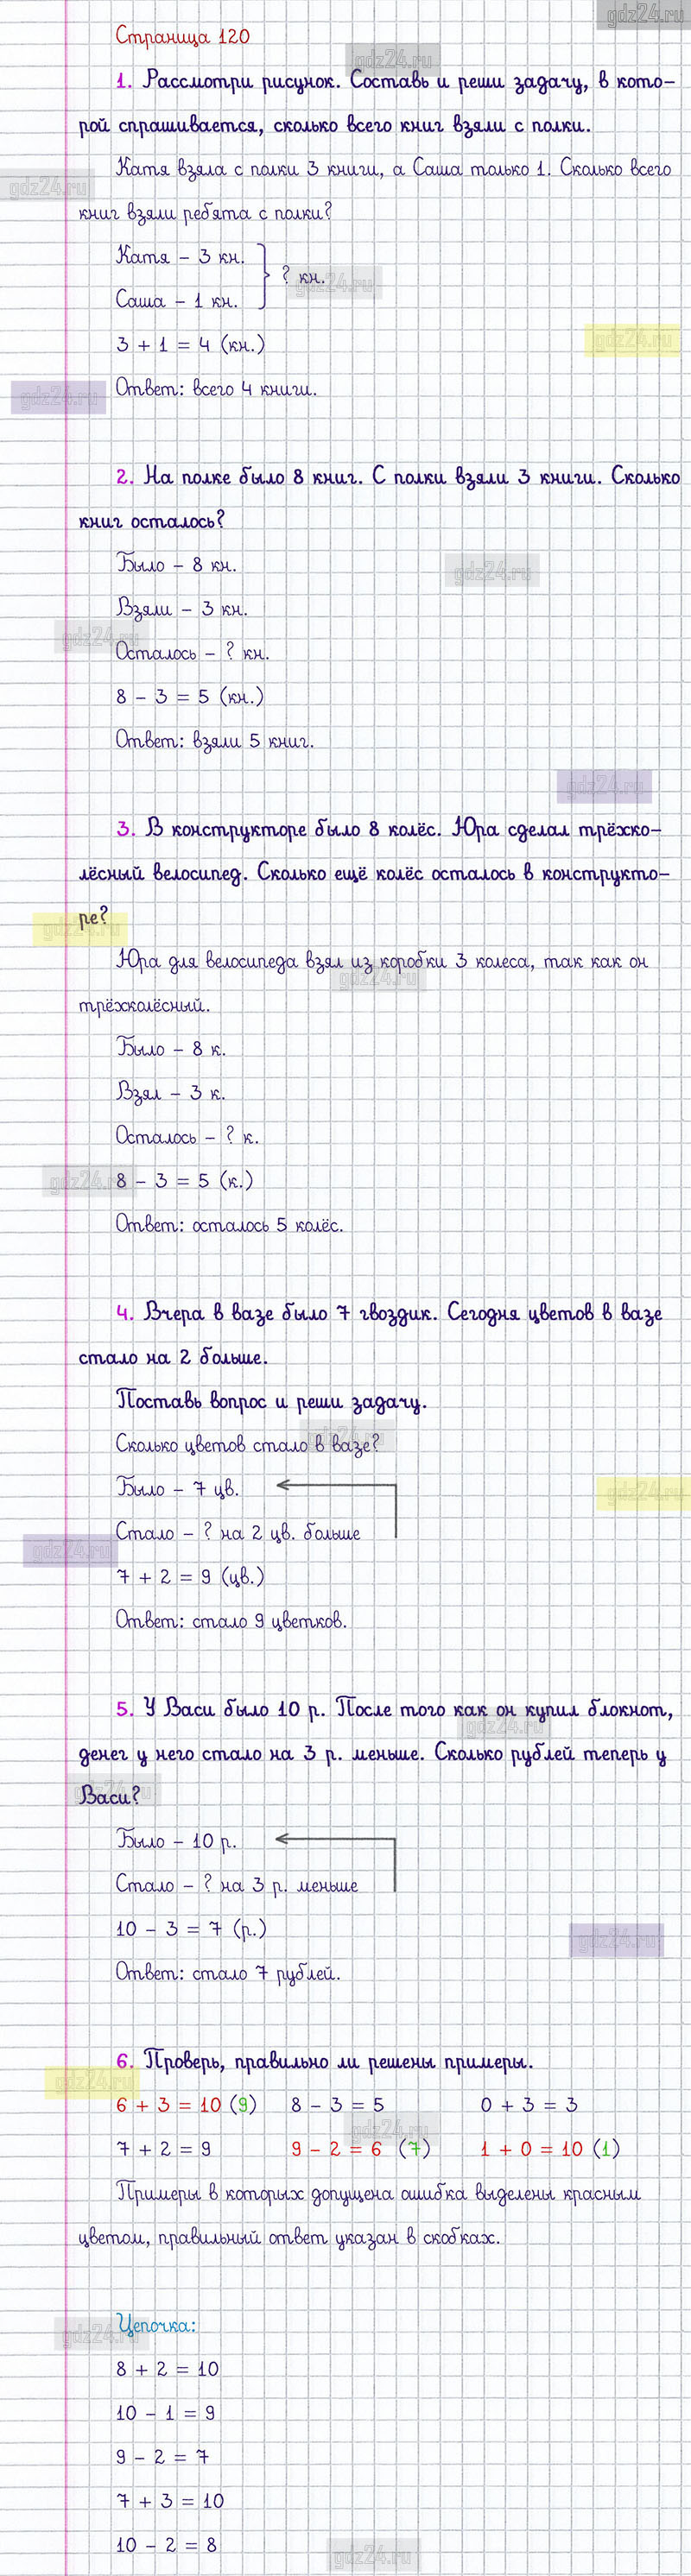 gdz24.ru
Страница 120
gdz24.ru
1. Рассмотри рисунок. Составь и реши задачу, в кото-
рой спрашивается, сколько всего книг взяли с полки.
Катя взяла с полки 3 книги, а Саша только 1. Сколько всего
gdz24.ru
книг взяли ребята с полки?
Катя – 3 кн.
? кн.
gdz24.ru
Саша – 1 кн.
3 + 1 = 4 (кн.)
gdz24.ru
Ответ: всего 4 книги.
gdz24.ru
2. На полке было 8 книг. С полки взяли 3 книги. Сколько
книг осталось?
Было – 8 кн.
gdz24.ru
Взяли – 3 кн.
gdz24.ru
Осталось – ? кн.
8 – 3 = 5 (кн.)
Ответ: взяли 5 книг.
gdz24.ru
3. В конструкторе было 8 колёс. Юра сделал трёхко-
лёсный велосипед. Сколько ещё колёс осталось в конструкто-
ре?
gdz24.ru
Юра для велосипеда взял из коробки 3 колеса, так как он
gdz24.ru
трёхколёсный.
Было – 8 к.
Взял – 3 к.
Осталось – ? к.
8 – 3 = 5 (к.)
gdz24.ru
Ответ: осталось 5 колёс.
4. Вчера в вазе было 7 гвоздик. Сегодня цветов в вазе
стало на 2 больше.
Поставь вопрос и реши задачу.
gdz24.ru
Сколько цветов стало в вазе?
Было – 7 цв.
gdz24.ru
Стало – ? на 2 цв. больше
gdz24.ru
7 + 2 = 9 (цв.)
Ответ: стало 9 цветков.
5. У Васи было 10 р. После того как он купил блокнот,
gdz24.ru
денег у него стало на 3 р. меньше. Сколько рублей теперь у
gdz24.ru
Васи?
Было – 10 р.
Стало – ? на 3 р. меньше
10 – 3 = 7 (р.)
gdz24.ru
Ответ: стало 7 рублей.
6. Проверь, правильно ли решены примеры.
gdz24.ru
6 + 3 = 10 (9) 8 – 3 = 5 0 + 3 = 3
gdz24.ru
7 + 2 = 9 9 – 2 = 6 (7) 1 + 0 = 10 (1)
Примеры в которых допущена ошибка выделены красным
цветом, правильный ответ указан в скобках.
Цепочка:
gdz24.ru
8 + 2 = 10
10 – 1 = 9
9 – 2 = 7
7 + 3 = 10
10 – 2 = 8
gdz24.ru